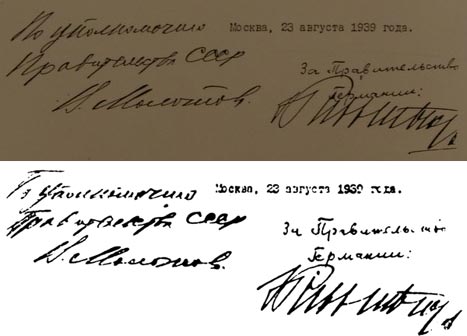 По уполномочию
Правительства СССР
В. Молотов.
Москва, 23 августа 1939 года.
За Правительство
Германии:
Риббентроп
По уполномочию
Правительства СССР
В. Молотов.
Москва, 23 августа 1939 года.
За Правительство
Германии: